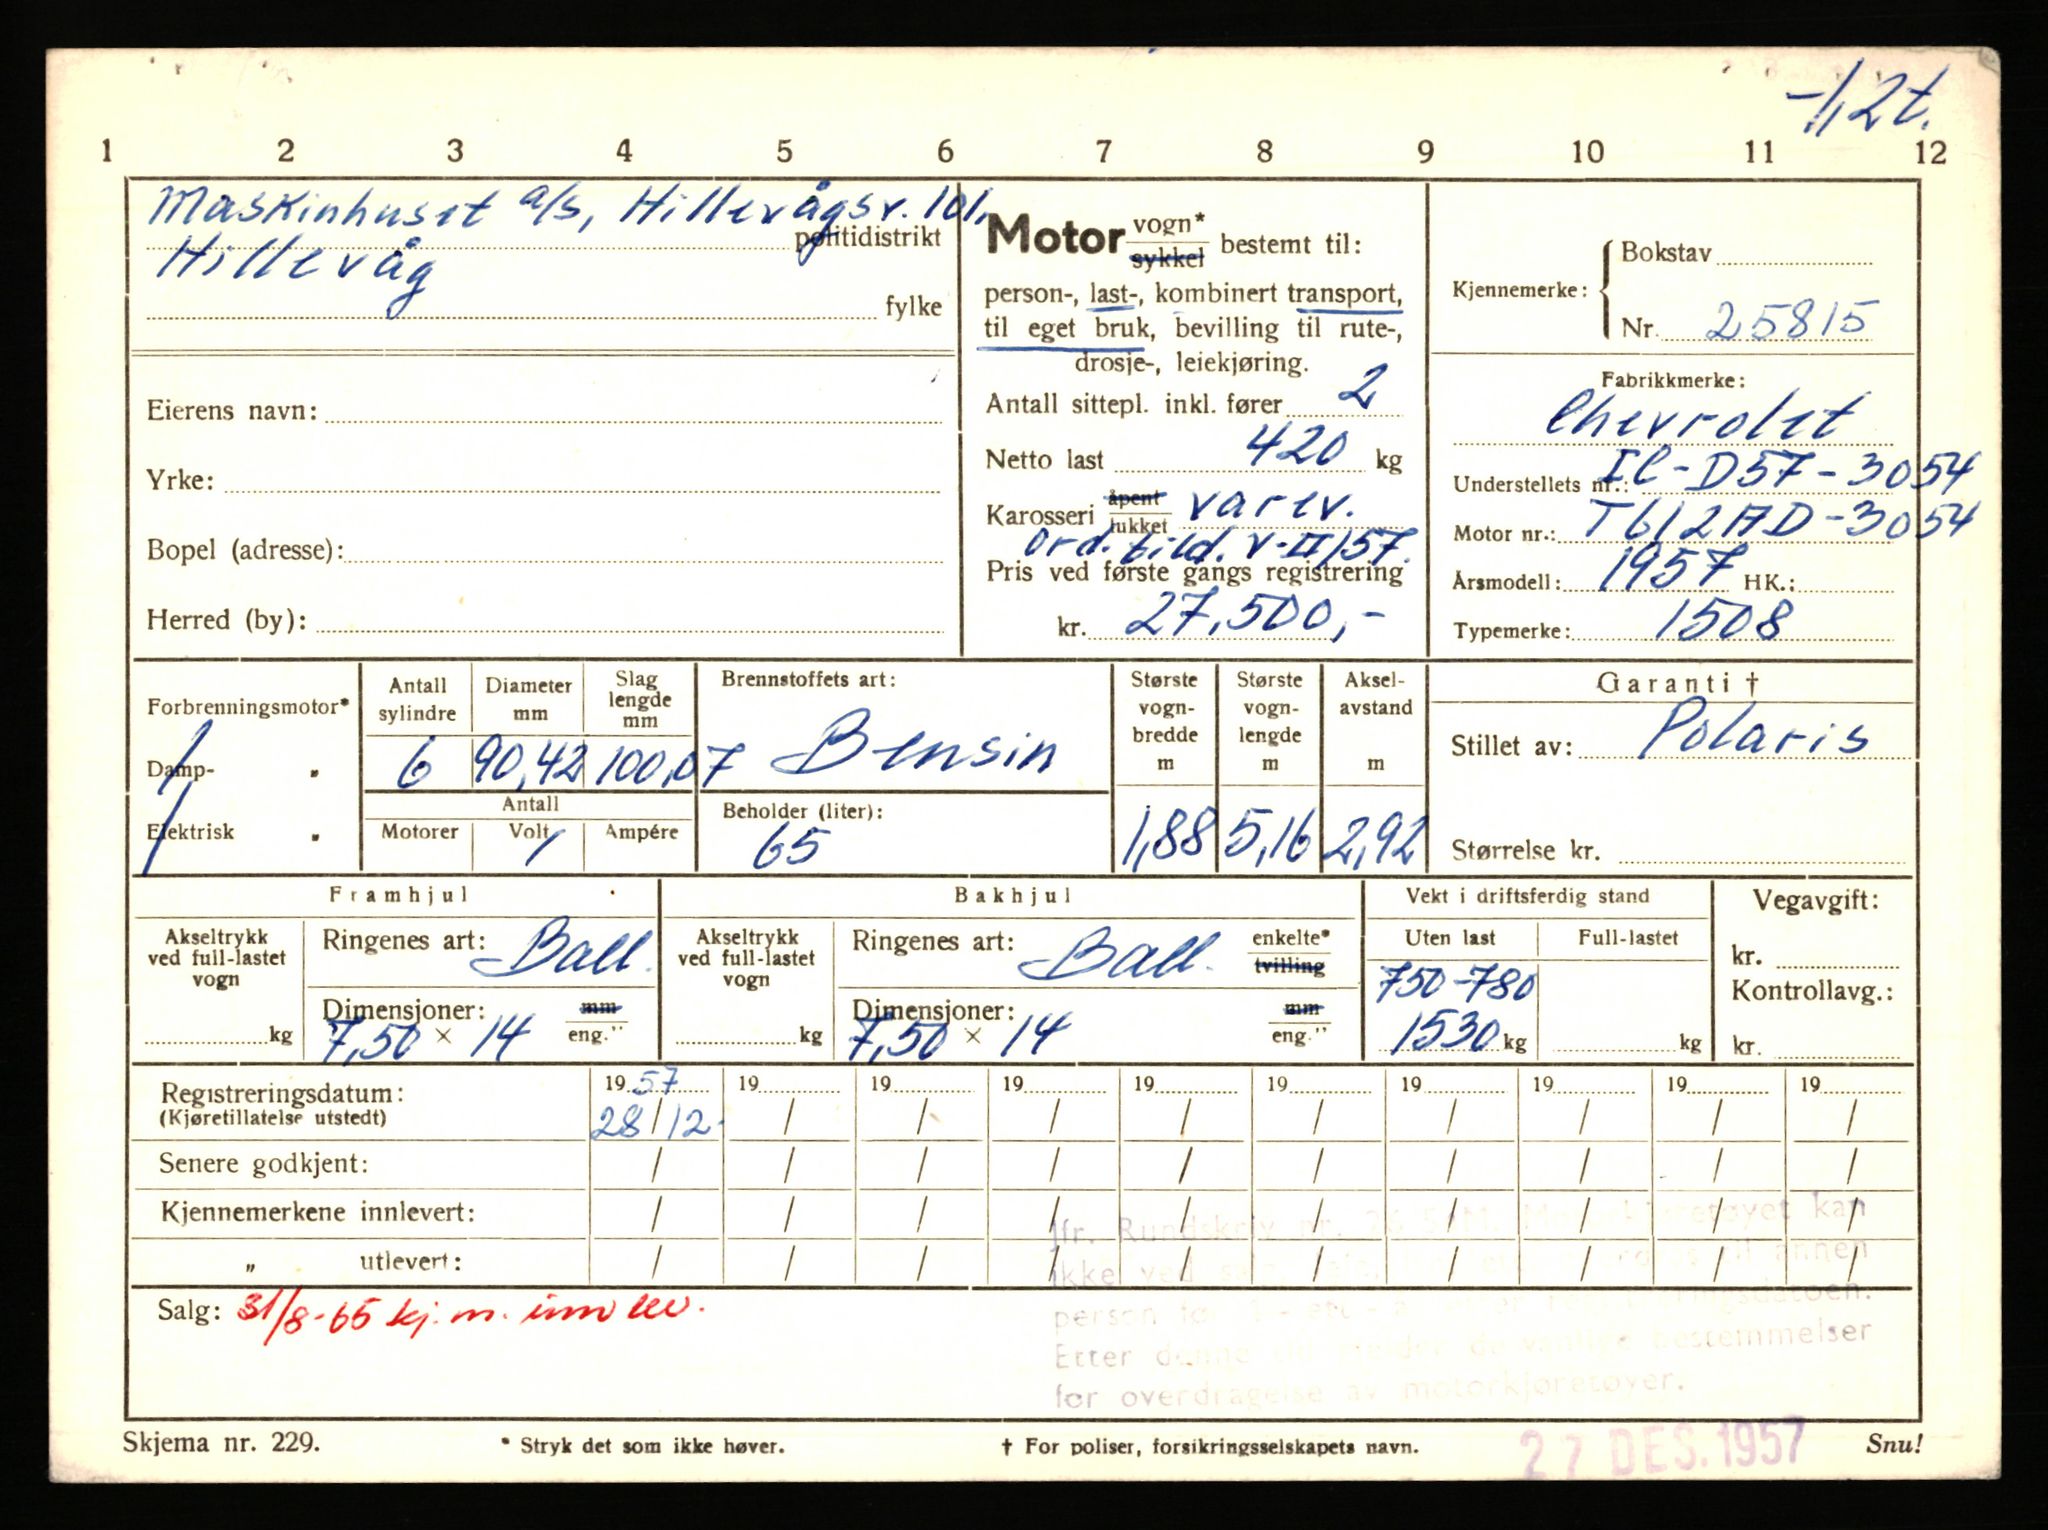 -1,2t.
1 2 3 4 5 6 7 8 9 10 11 12
Maskinhuset a/s, Hillevågsv. 101,
politidistrikt
Hillevåg
fylke
Eierens navn:
Yrke:
Bopel (adresse):
Herred (by):
Motor vogn* sykkel bestemt til:
person-, last-, kombinert transport,
til eget bruk, bevilling til rute-,
drosje-, leiekjøring.
Antall sittepl. inkl. fører 2
Netto last 420 kg
Karosseri åpent lukket varev.
ord. tild. V-II/57.
Pris ved første gangs registrering
kr. 27.500,-
Kjennemerke: Bokstav
Nr. 25815
Fabrikkmerke:
Chevrolet
Understellets nr.: IC-D57-3054
Motor nr.: T612AD-3054
Årsmodell: 1957 HK.:
Typemerke: 1508
Forbrenningsmotor*
Damp- „
Elektrisk „
Antall sylindre 6
Diameter mm 90,42
Slag lengde mm 100,07
Antall
Motorer Volt Ampére
Brennstoffets art:
Bensin
Beholder (liter):
65
Største vogn-bredde m 1,88
Største vogn-lengde m 5,16
Aksel-avstand m 2,92
Garanti †
Stillet av: Polaris
Størrelse kr.
Framhjul
Akseltrykk ved full-lastet vogn
kg
Ringenes art: Ball.
Dimensjoner: mm
7,50 × 14 eng."
Bakhjul
Akseltrykk ved full-lastet vogn
kg
Ringenes art: Ball. enkelte* tvilling
Dimensjoner: mm
7,50 × 14 eng."
Vekt i driftsferdig stand
Uten last Full-lastet
750-780
1530 kg kg
Vegavgift:
kr.
Kontrollavg.:
kr.
Registreringsdatum: 19 57 19 19 19 19 19 19 19 19 19
(Kjøretillatelse utstedt) 28/12- / / / / / / / / /
Senere godkjent: / / / / / / / / / /
Kjennemerkene innlevert: / / / / / / / / / /
„ utlevert: / / / / / / / / / /
Salg: 31/8-65 kj. m. innlev.
Jfr. Rundskriv nr. kan
ikke ved til annen
person
Etter denne tid gjelder de vanlige bestemmelser
for overdragelse av motorkjøretøyer.
27 DES. 1957
Skjema nr. 229. * Stryk det som ikke høver. † For poliser, forsikringsselskapets navn. Snu!